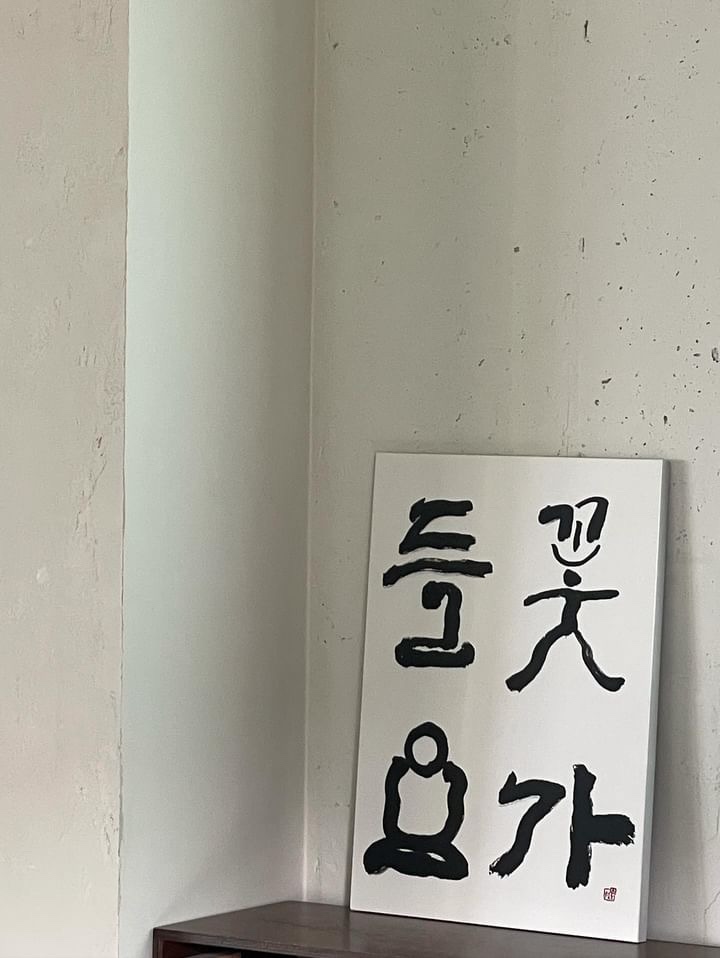 들꽃
요가